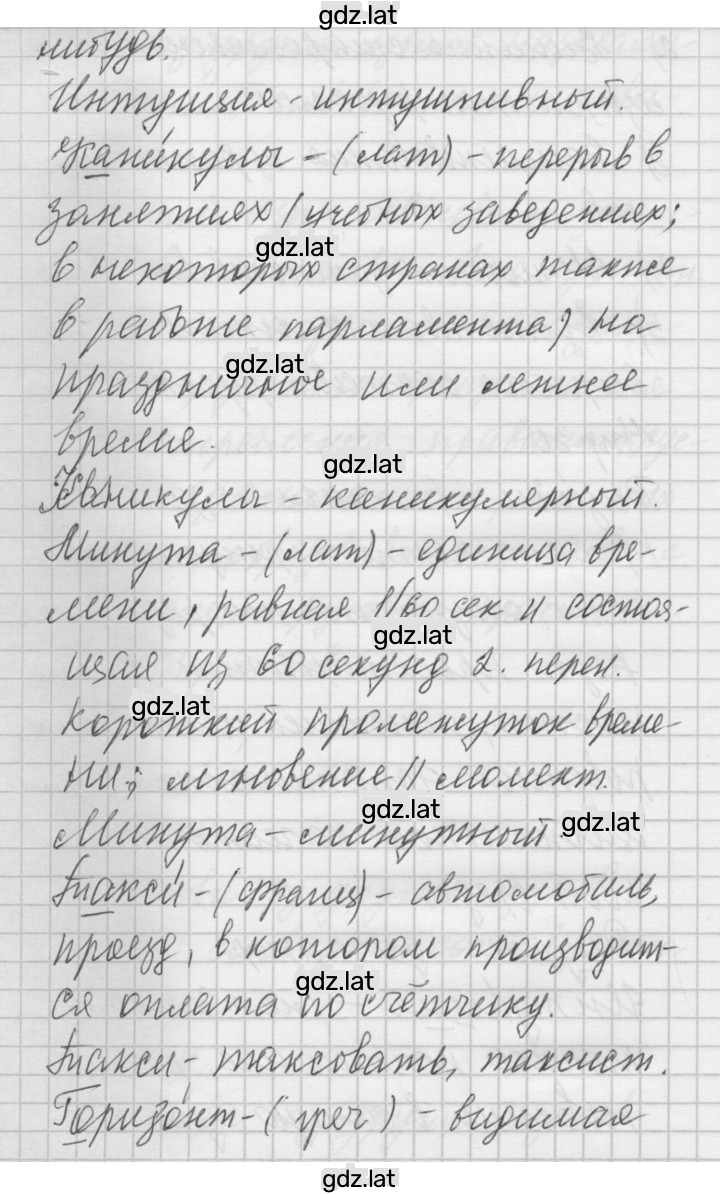 gdz.lat
нибудь.
Интуиция - интуитивный.
Кани́кулы - (лат) - перерыв в
занятиях (учебных заведениях;
gdz.lat
в некоторых странах также
в работе парламента) на
gdz.lat
праздничное или летнее
время.
gdz.lat
Каникулы - каникулярный.
Минута - (лат) - единица вре-
мени, равная 1/60 сек и состоя-
gdz.lat
щая из 60 секунд 2. перен.
gdz.lat
короткий промежуток време-
ни; мгновение // момент.
gdz.lat
Минута - минутный.
gdz.lat
Такси́ - (франц) - автомобиль,
проезд, в котором производит-
gdz.lat
ся оплата по счётчику.
Такси - таксовать, таксист.
Горизо́нт - (греч) - видимая
gdz.lat